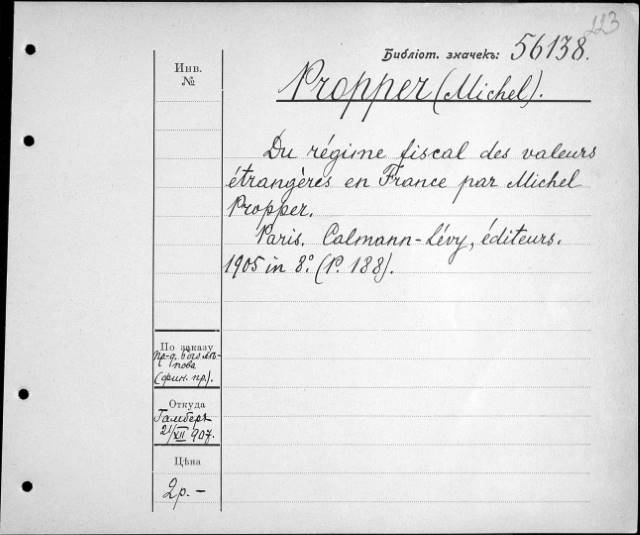 223
Библіот. значекъ: 56138.
Инв.
№
Propper (Michel).
Du régime fiscal des valeurs
étrangères en France par Michel
Propper.
Paris. Calmann-Lévy, éditeurs.
1905 in 8º. (P. 188).
По заказу
пр-д. Боголѣ-
пова
(фин. пр.).
Откуда
Гамберъ
21/XII 907.
Цѣна
2р. –